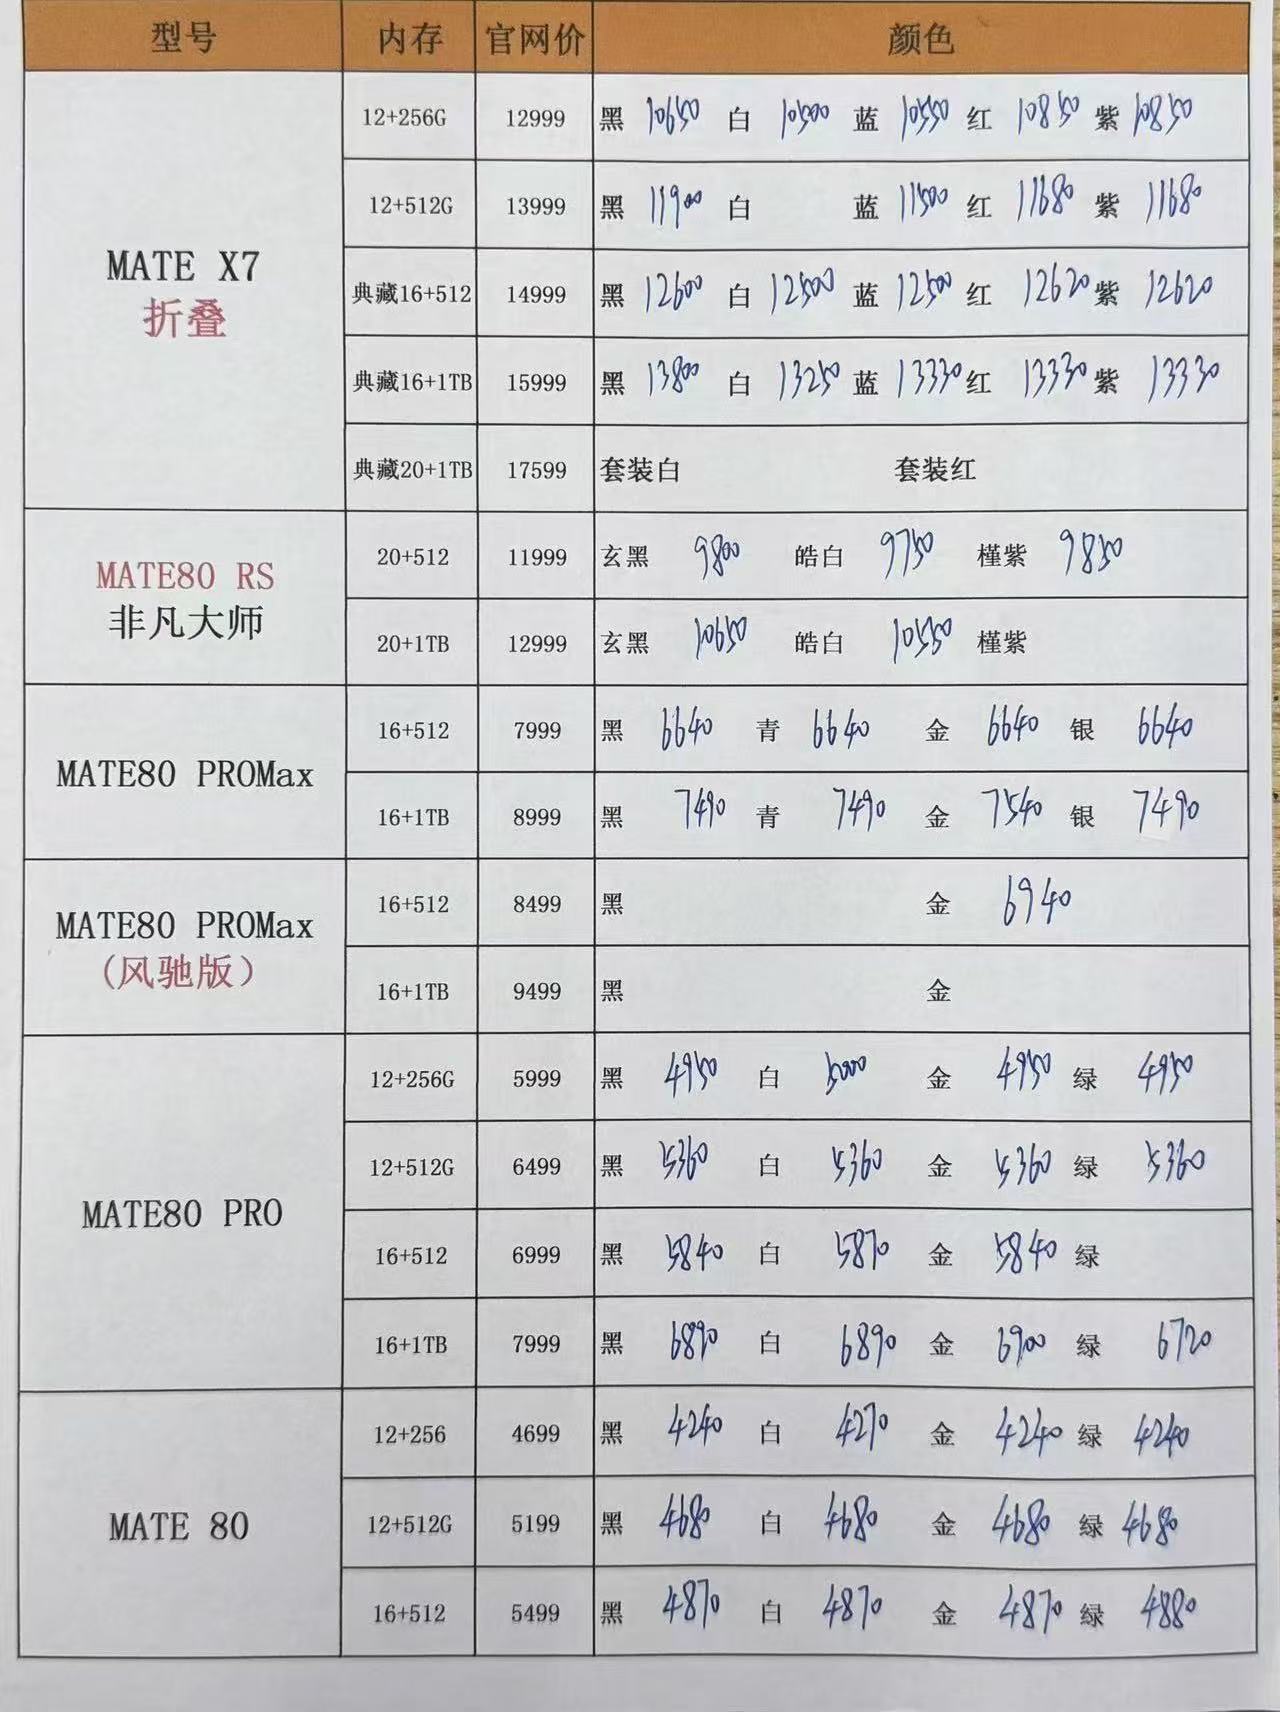 型号 内存 官网价 颜色
MATE X7
折叠
12+256G 12999 黑 10650 白 10500 蓝 10550 红 10850 紫 10850
12+512G 13999 黑 11900 白 蓝 11500 红 11680 紫 11680
典藏16+512 14999 黑 12600 白 12500 蓝 12500 红 12620 紫 12620
典藏16+1TB 15999 黑 13800 白 13250 蓝 13330 红 13330 紫 13330
典藏20+1TB 17599 套装白 套装红
MATE80 RS
非凡大师
20+512 11999 玄黑 9800 皓白 9750 槿紫 9850
20+1TB 12999 玄黑 10650 皓白 10550 槿紫
MATE80 PROMax
16+512 7999 黑 6640 青 6640 金 6640 银 6640
16+1TB 8999 黑 7490 青 7490 金 7540 银 7490
MATE80 PROMax
(风驰版)
16+512 8499 黑 金 6940
16+1TB 9499 黑 金
MATE80 PRO
12+256G 5999 黑 4950 白 5000 金 4950 绿 4950
12+512G 6499 黑 5360 白 5360 金 5360 绿 5360
16+512 6999 黑 5840 白 5870 金 5840 绿
16+1TB 7999 黑 6890 白 6890 金 6900 绿 6720
MATE 80
12+256 4699 黑 4240 白 4270 金 4240 绿 4240
12+512G 5199 黑 4680 白 4680 金 4680 绿 4680
16+512 5499 黑 4870 白 4870 金 4870 绿 4880